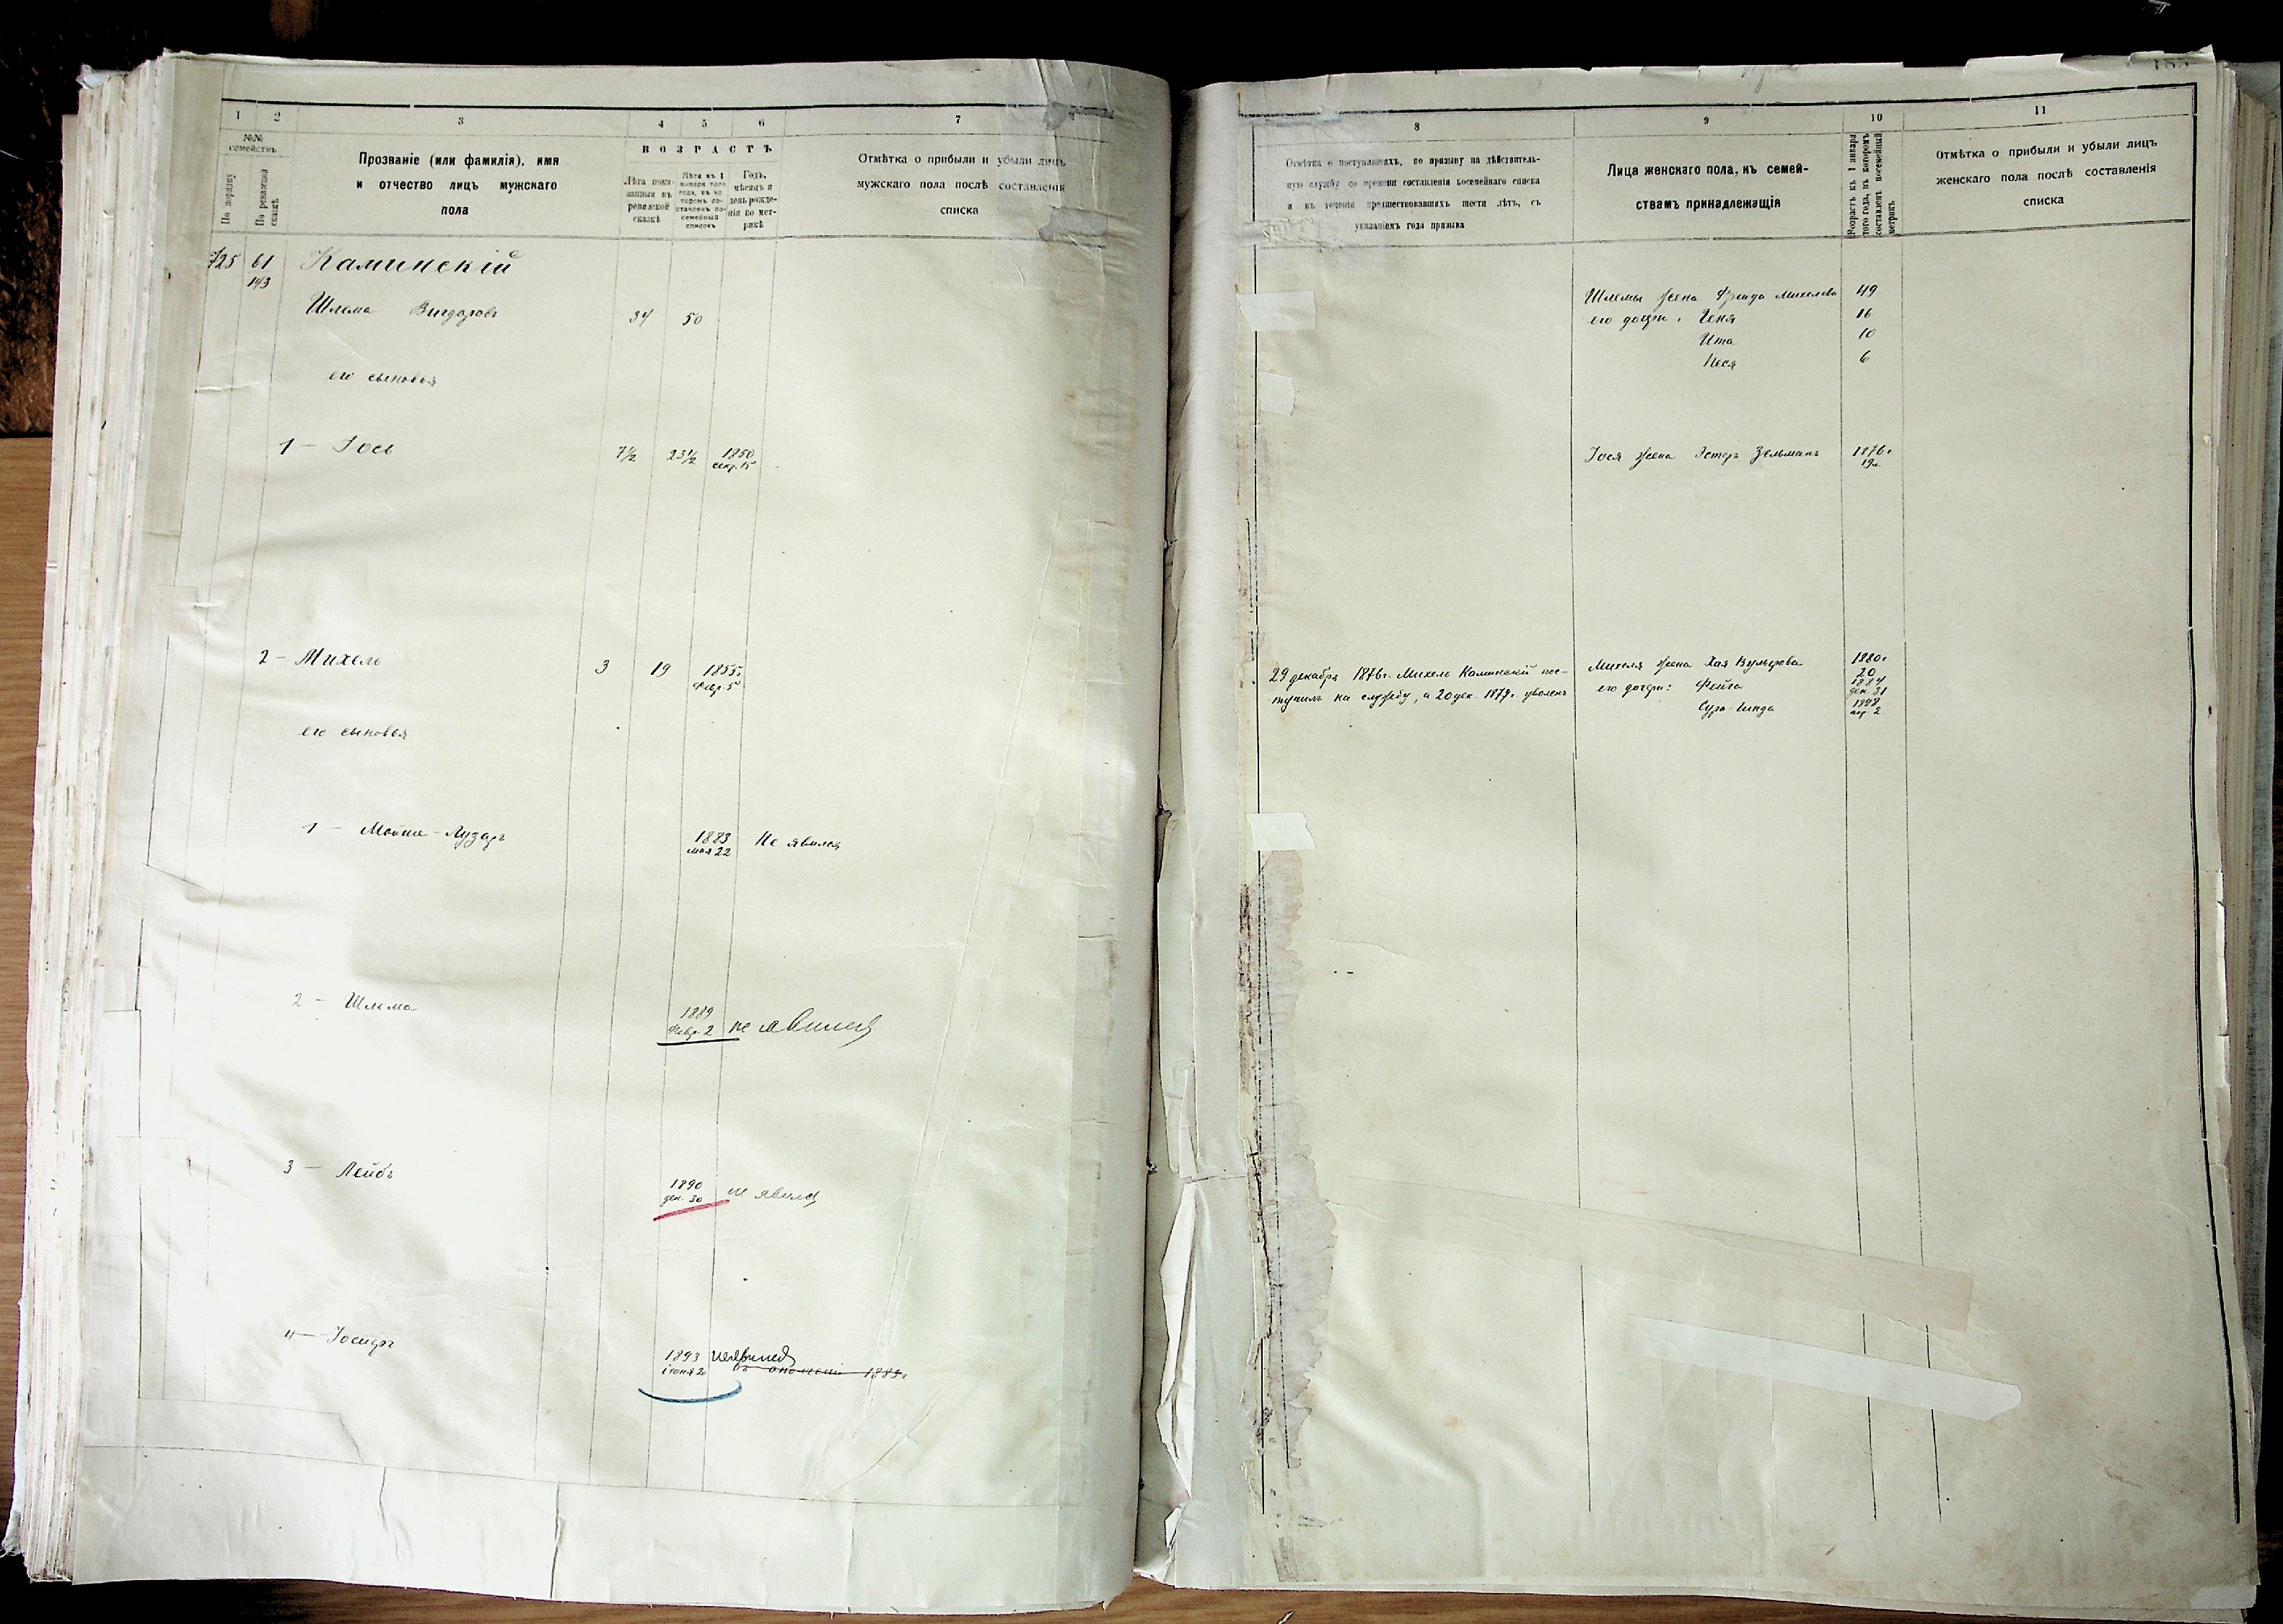 1 2 3 4 5 6 7
№№ семействъ
По порядку
По ревизской сказкѣ
Прозваніе (или фамилія), имя
и отчество лицъ мужскаго
пола
ВОЗРАСТЪ
Лѣта пока-
занныя въ
ревизской
сказкѣ
Лѣта къ 1
января того
года, въ ко-
торомъ со-
ставленъ по-
семейный
списокъ
Годъ,
мѣсяцъ и
день рожде-
нія по мет-
рикѣ
Отмѣтка о прибыли и убыли лицъ
мужскаго пола послѣ составленія
списка
725 61 Каминскій
143
Шлема Вигдоровъ 34 50
его сыновья
1 — Іось 7½ 23½ 1850
сент. 15
2 - Михель 3 19 1855 г.
февр. 5
его сыновья
1 - Мовша-Лузаръ 1883 Не явился
мая 22
2 - Шлема 1889
февр. 2 не явился
3 — Лейбъ 1890
дек. 30 не явился
4 — Іосифъ
1893 не явился
іюня 20 1889г
8 9 10 11
Отмѣтка о поступившихъ, по призыву на дѣйствитель-
ную службу со времени составленія посемейнаго списка
и въ теченіи предшествовавшихъ шести лѣтъ, съ
указаніемъ года призыва
Лица женскаго пола, къ семей-
ствамъ принадлежащія
Возрастъ къ 1 января
того года, въ которомъ
составленъ посемейный
Отмѣтка о прибыли и убыли лицъ
женскаго пола послѣ составленія
списка
Шлемы жена Фрейда Михелева 49
его дочери: Геня 16
Ита 10
Песя 6
Іося жена Эстеръ Зельманъ 1876г
19л.
29 декабря 1876г. Михель Каминскій пос-
тупилъ на службу, а 20 дек. 1879г. уволенъ
Михеля жена Хая Вульфова 1880г
20
его дочери: Фейга 1884
дек. 31
Сура-Гинда 1898
апр. 2